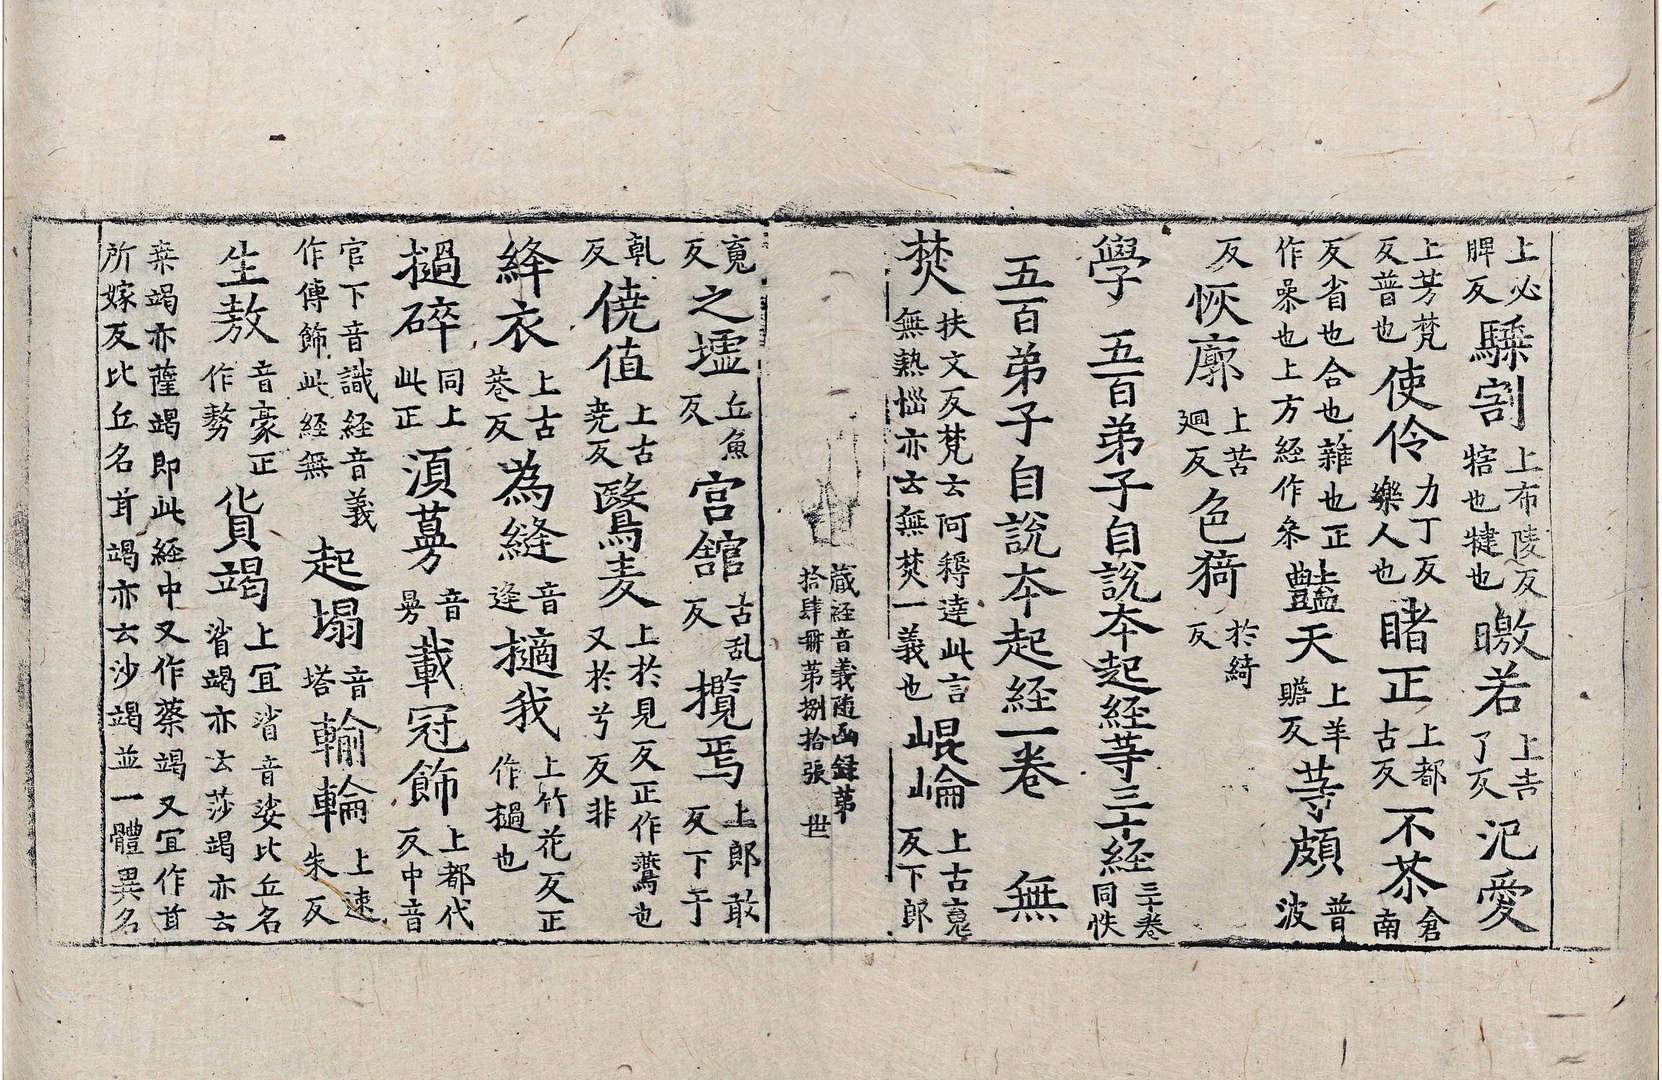 上必脾反騬割上布陵反犗也犍也曒若上吉了反汜愛
上芳梵反普也使伶力丁反樂人也睹正上都古反不苶倉南
反省也合也雜也正作喿也上方経作叅豔天上羊贍反䓁頗普波
反恢廓上苦廻反色猗於綺反
學五百弟子自說本起経䓁三十経三十卷同帙
五百弟子自說本起経一卷 無
焚扶文反梵云阿耨達此言無熱惱亦云無焚一義也崐崘上古䰟反下郎
䰟反之墟丘魚反宮舘古乱反攬焉上郎敢反下于
乹反僥值上古尭反鷖麦上於見反正作䴏也又於兮反非
絳衣上古巷反為縫音逢擿我上竹花反正作撾也
撾碎同上此正湏蔓音㬅載冠飾上都代反中音
官下音識経音義作傅飾此経無起塌音塔輸輪上速朱反
生敖音豪正作䯨貨竭上冝㳙音娑比丘名㳙竭亦云莎竭亦云
桒竭亦薩竭即此経中又作蔡竭又冝作䒤所嫁反比丘名䒤竭亦云沙竭並一體異名
蔵経音義随凾録苐
拾肆冊苐捌拾張 世